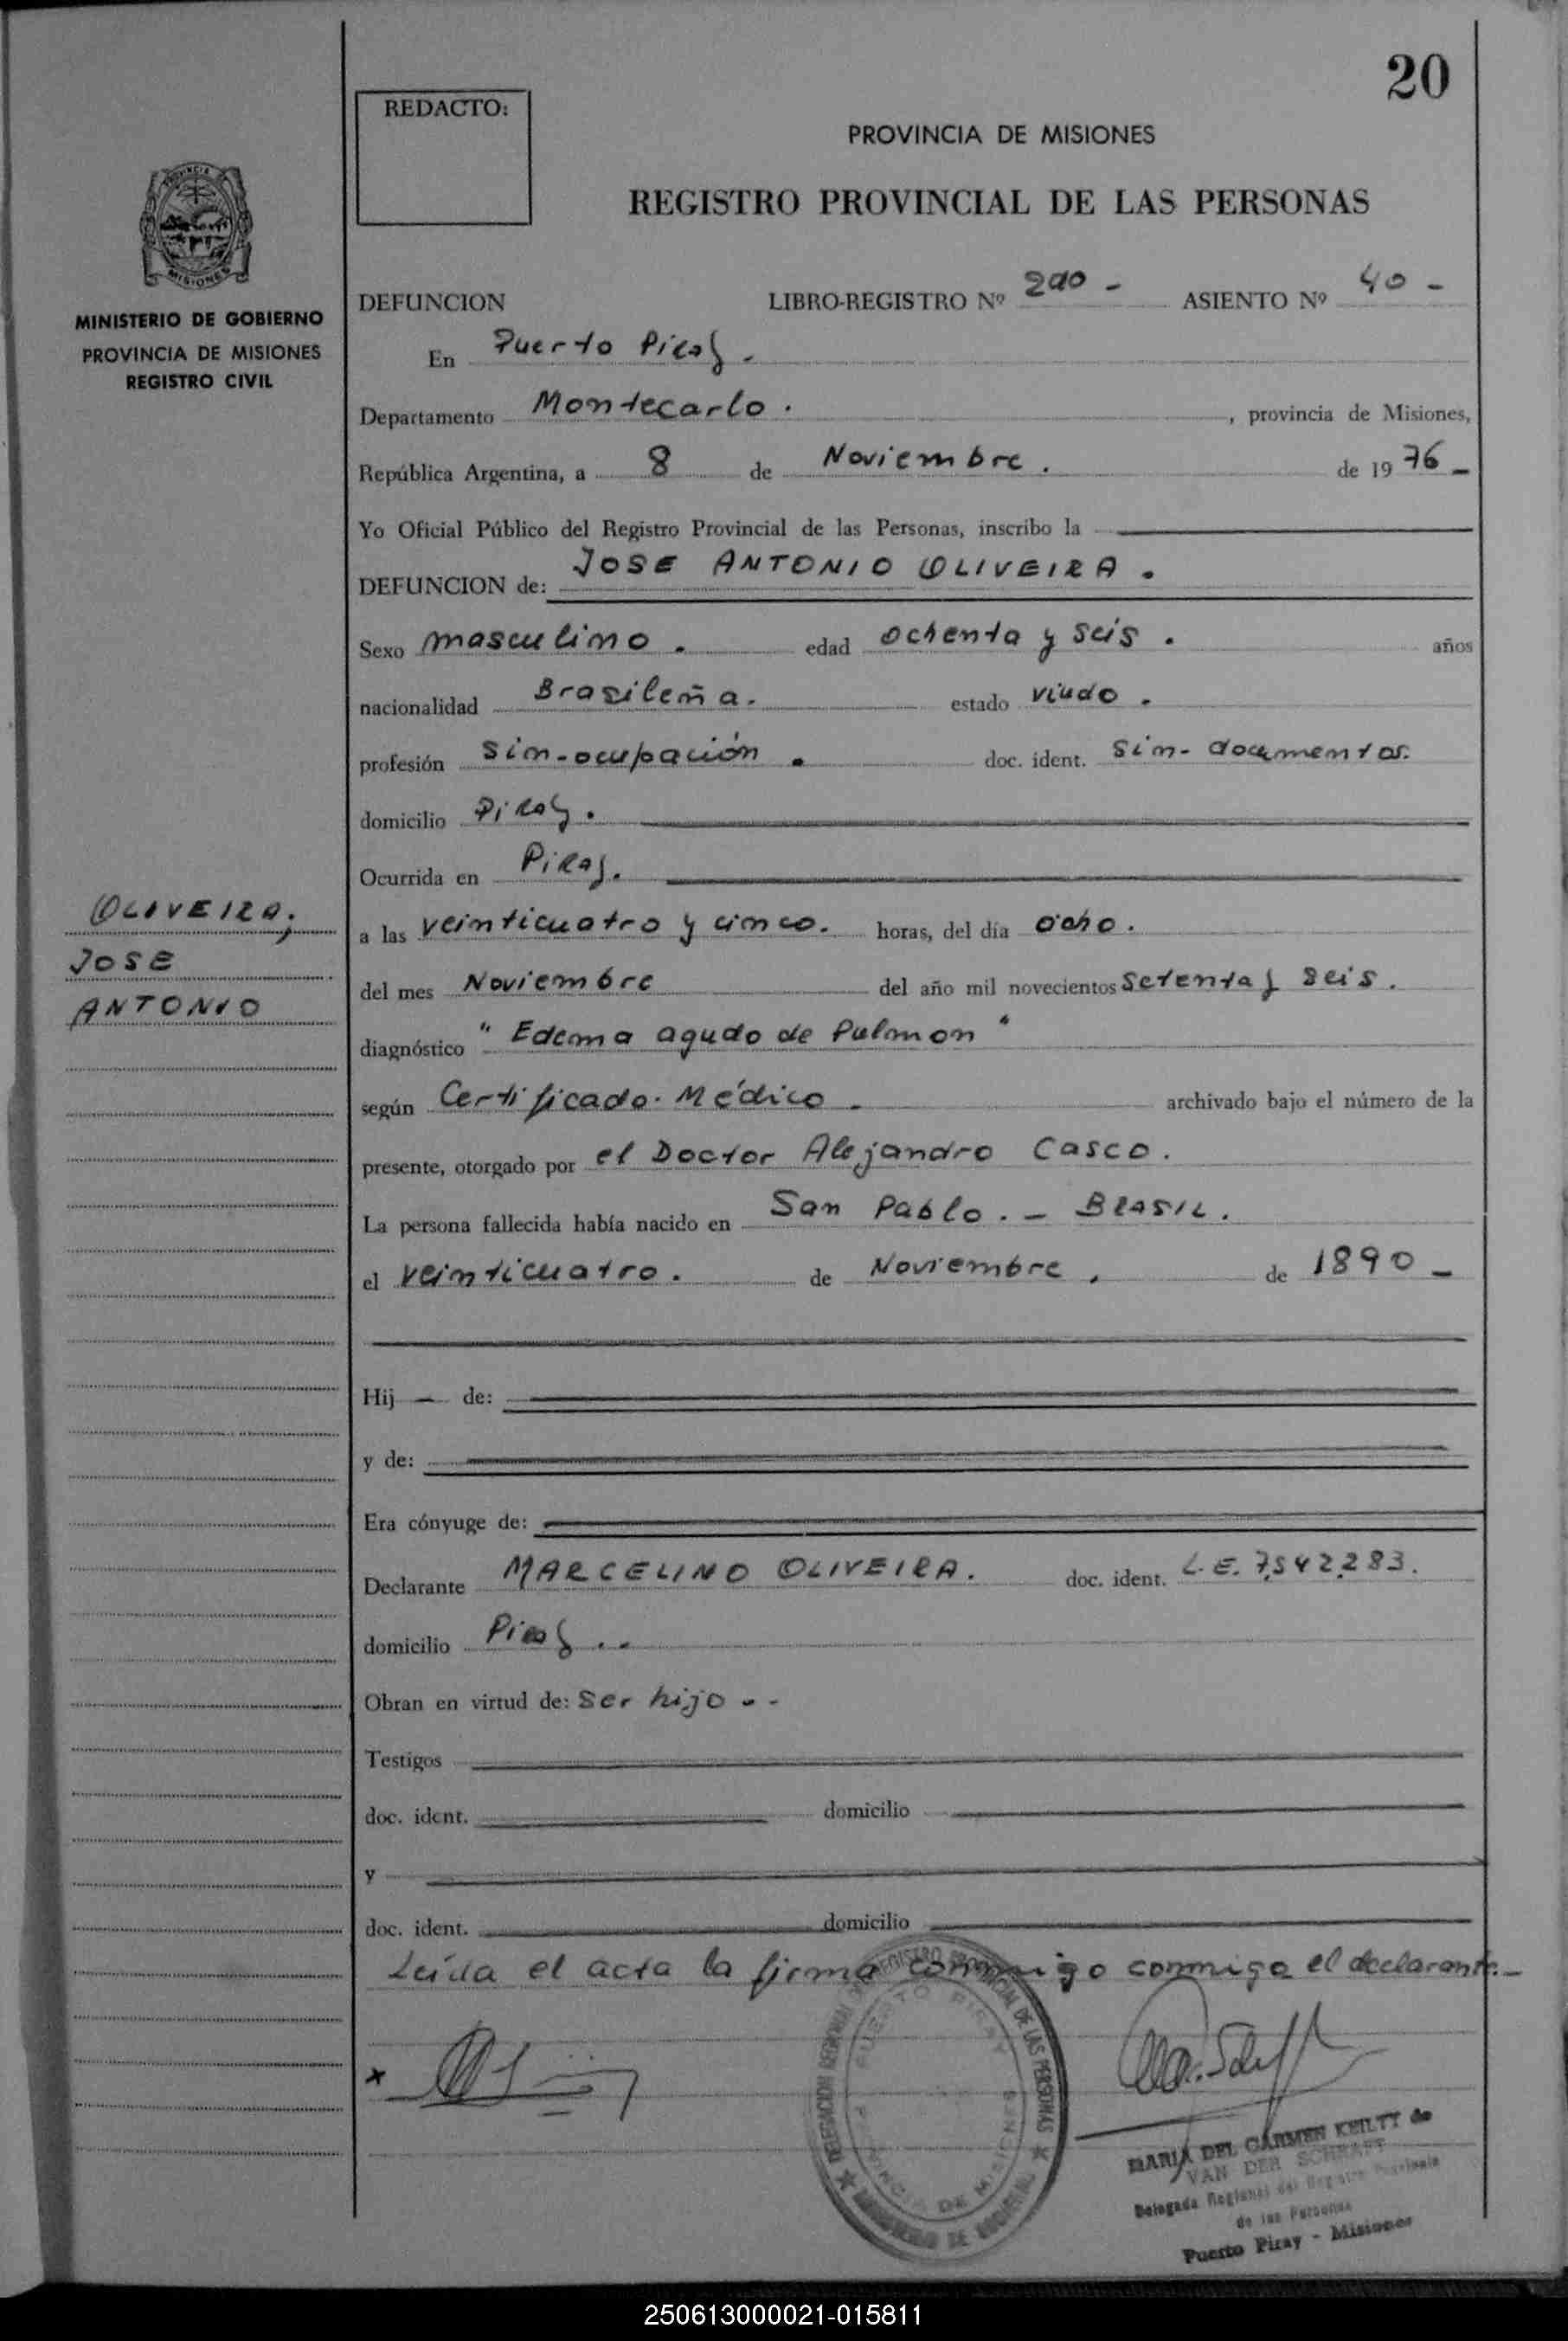 20
REDACTO:
PROVINCIA DE MISIONES
REGISTRO PROVINCIAL DE LAS PERSONAS
MINISTERIO DE GOBIERNO
PROVINCIA DE MISIONES
REGISTRO CIVIL
DEFUNCION LIBRO-REGISTRO Nº ASIENTO Nº 40 -
En Puerto Piray.
Departamento Montecarlo. , provincia de Misiones,
República Argentina, a 8 de Noviembre. de 1976 -
Yo Oficial Público del Registro Provincial de las Personas, inscribo la
DEFUNCION de: JOSE ANTONIO OLIVEIRA.
Sexo masculino. edad ochenta y seis. años
nacionalidad Brasileña. estado viudo.
profesión sin-ocupación. doc. ident. Sin-documentos.
domicilio Piray.
Ocurrida en Piray.
OLIVEIRA,
JOSE
ANTONIO
a las veinticuatro y cinco. horas, del día ocho.
del mes Noviembre del año mil novecientos Setenta y Seis.
diagnóstico "Edema agudo de Pulmon"
según Certificado. Médico. archivado bajo el número de la
presente, otorgado por el Doctor Alejandro Casco.
La persona fallecida había nacido en San Pablo. - BRASIL.
el veinticuatro. de Noviembre, de 1890 -
Hij — de:
y de:
Era cónyuge de:
Declarante MARCELINO OLIVEIRA. doc. ident. L.E. 7.542.283.
domicilio Piray..
Obran en virtud de: Ser hijo --
Testigos
doc. ident. domicilio
y
doc. ident. domicilio
Leída el acta la firma conmigo conmigo el declarante.-
x
DELEGACION REGIONAL DEL REGISTRO PROVINCIAL DE LAS PERSONAS
PUERTO PIRAY
PROVINCIA DE MISIONES
MINISTERIO DE GOBIERNO
MARIA DEL CARMEN KEILTY de
VAN DER SCHRAFT
Delegada Regional del Registro Provincia
de las Personas
Puerto Piray - Misiones
250613000021-015811